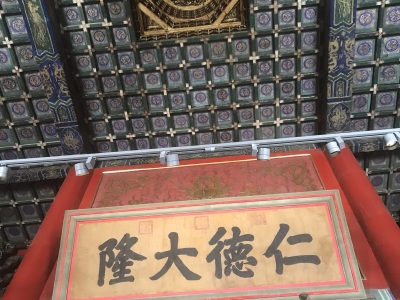 仁德大隆